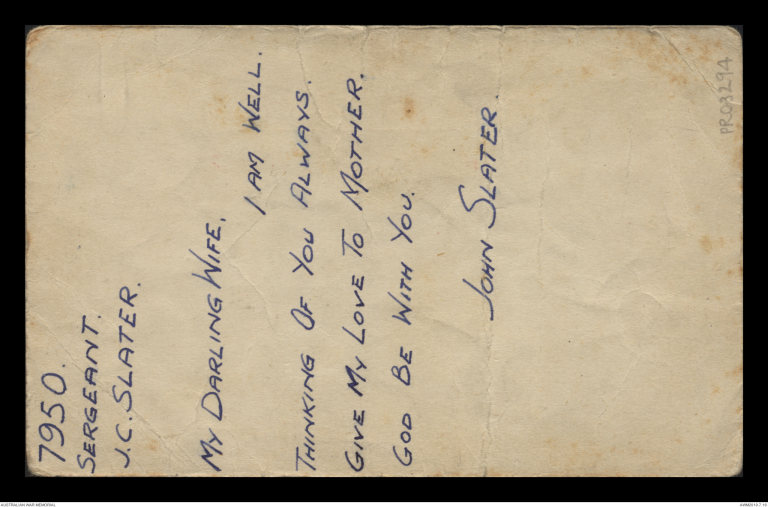 7950.
SERGEANT.
J.C. SLATER.
MY DARLING WIFE.
I AM WELL.
THINKING OF YOU ALWAYS.
GIVE MY LOVE TO MOTHER.
GOD BE WITH YOU.
JOHN SLATER.
PR03294
AUSTRALIAN WAR MEMORIAL